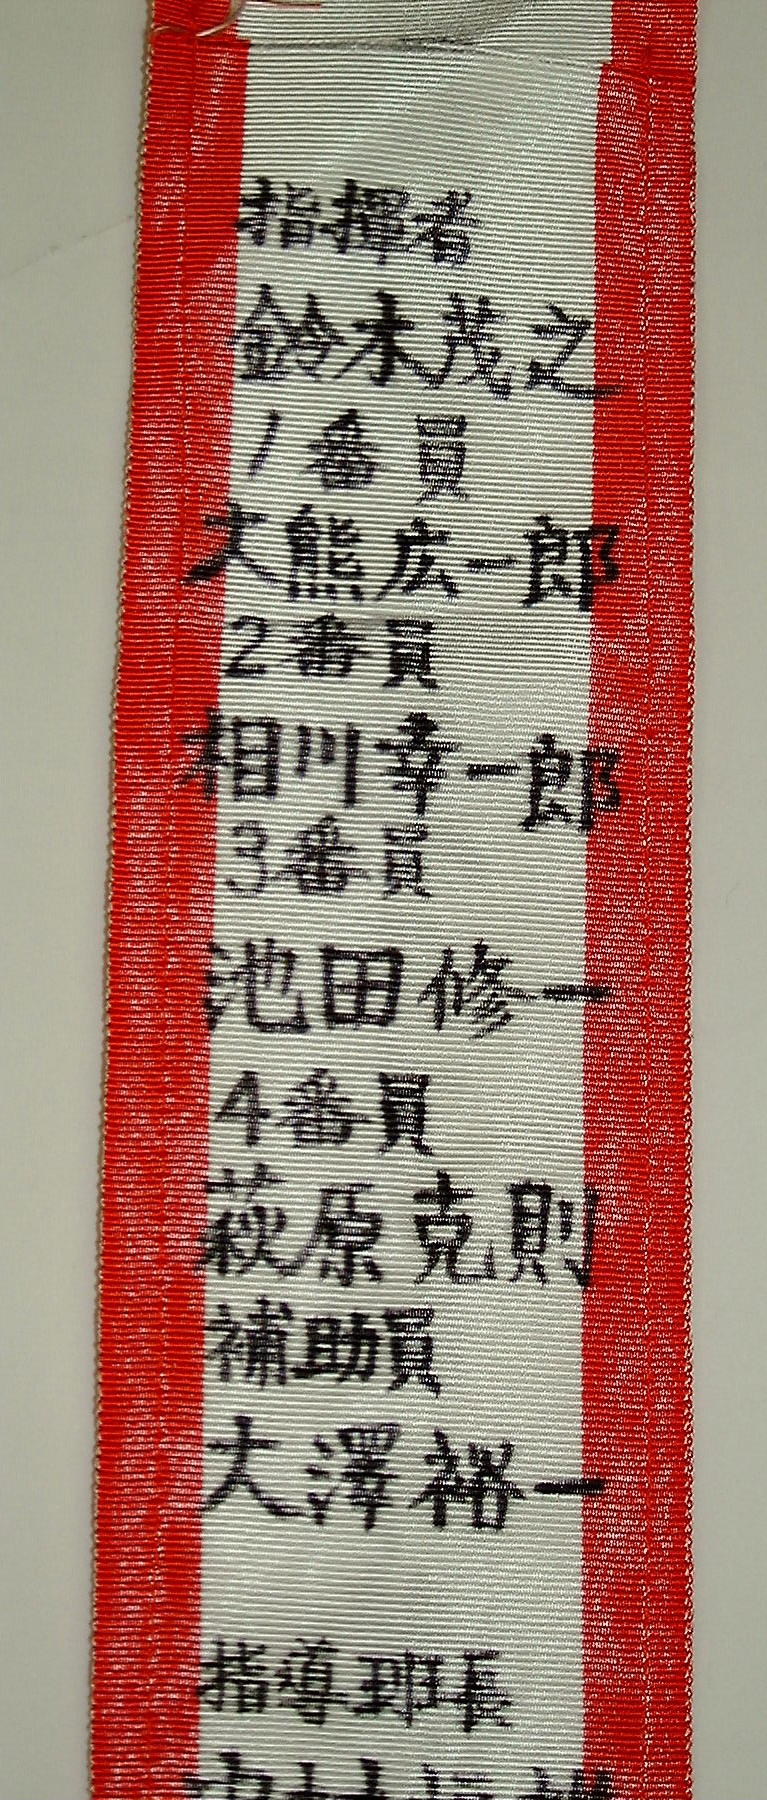 指揮者
鈴木茂之
1番員
大熊広一郎
2番員
相川幸一郎
3番員
池田修一
4番員
萩原克則
補助員
大澤裕一
指導班長